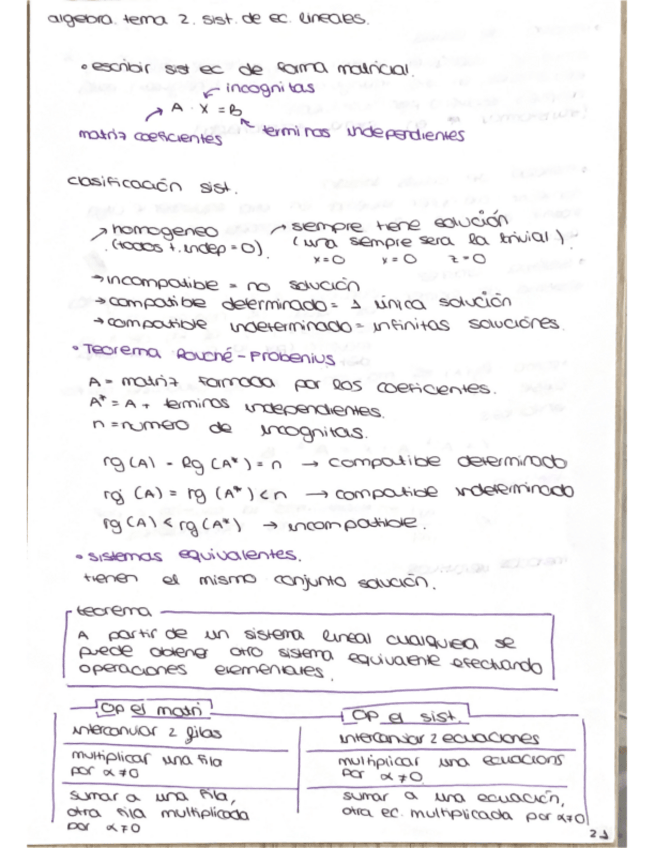 algebra. tema 2. sist. de ec. lineales.
• escribir sist ec de forma matricial.
incognitas
A · X = B
matriz coeficientes
terminos independientes
clasificación sist.
→ homogeneo → siempre tiene solución
(todos t. indep = 0). (una siempre sera la trivial).
x=0 y=0 z=0
→ incompatible = no solución
→ compatible determinado = 1 única solución
→ compatible indeterminado = infinitas soluciónes.
• Teorema Rouché - Frobenius
A = matriz formada por los coeficientes.
A* = A + terminos independientes.
n = numero de incognitas.
rg (A) = Rg (A*) = n → compatible determinado
rg (A) = rg (A*) < n → compatible indeterminado
rg (A) < rg (A*) → incompatible.
• sistemas equivalentes.
tienen el mismo conjunto solución.
teorema
A partir de un sistema lineal cualquiera se
puede obtener otro sistema equivalente efectuando
operaciones elementales.
Op el matri
Op el sist.
intercambiar 2 filas
intercambiar 2 ecuaciones
multiplicar una fila
por α≠0
multiplicar una ecuacions
por α≠0
sumar a una fila,
otra fila multiplicada
por α≠0
sumar a una ecuación,
otra ec. multiplicada por α≠0
2.1